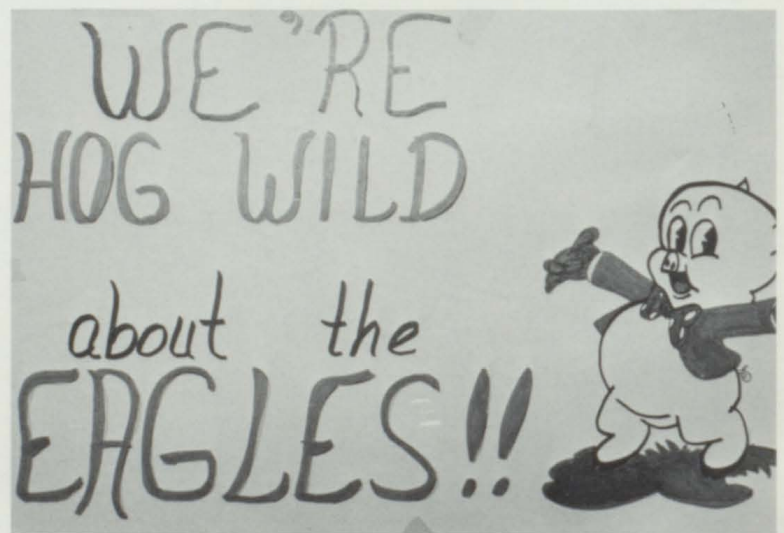 WE'RE
HOG WILD
about the
EAGLES!!